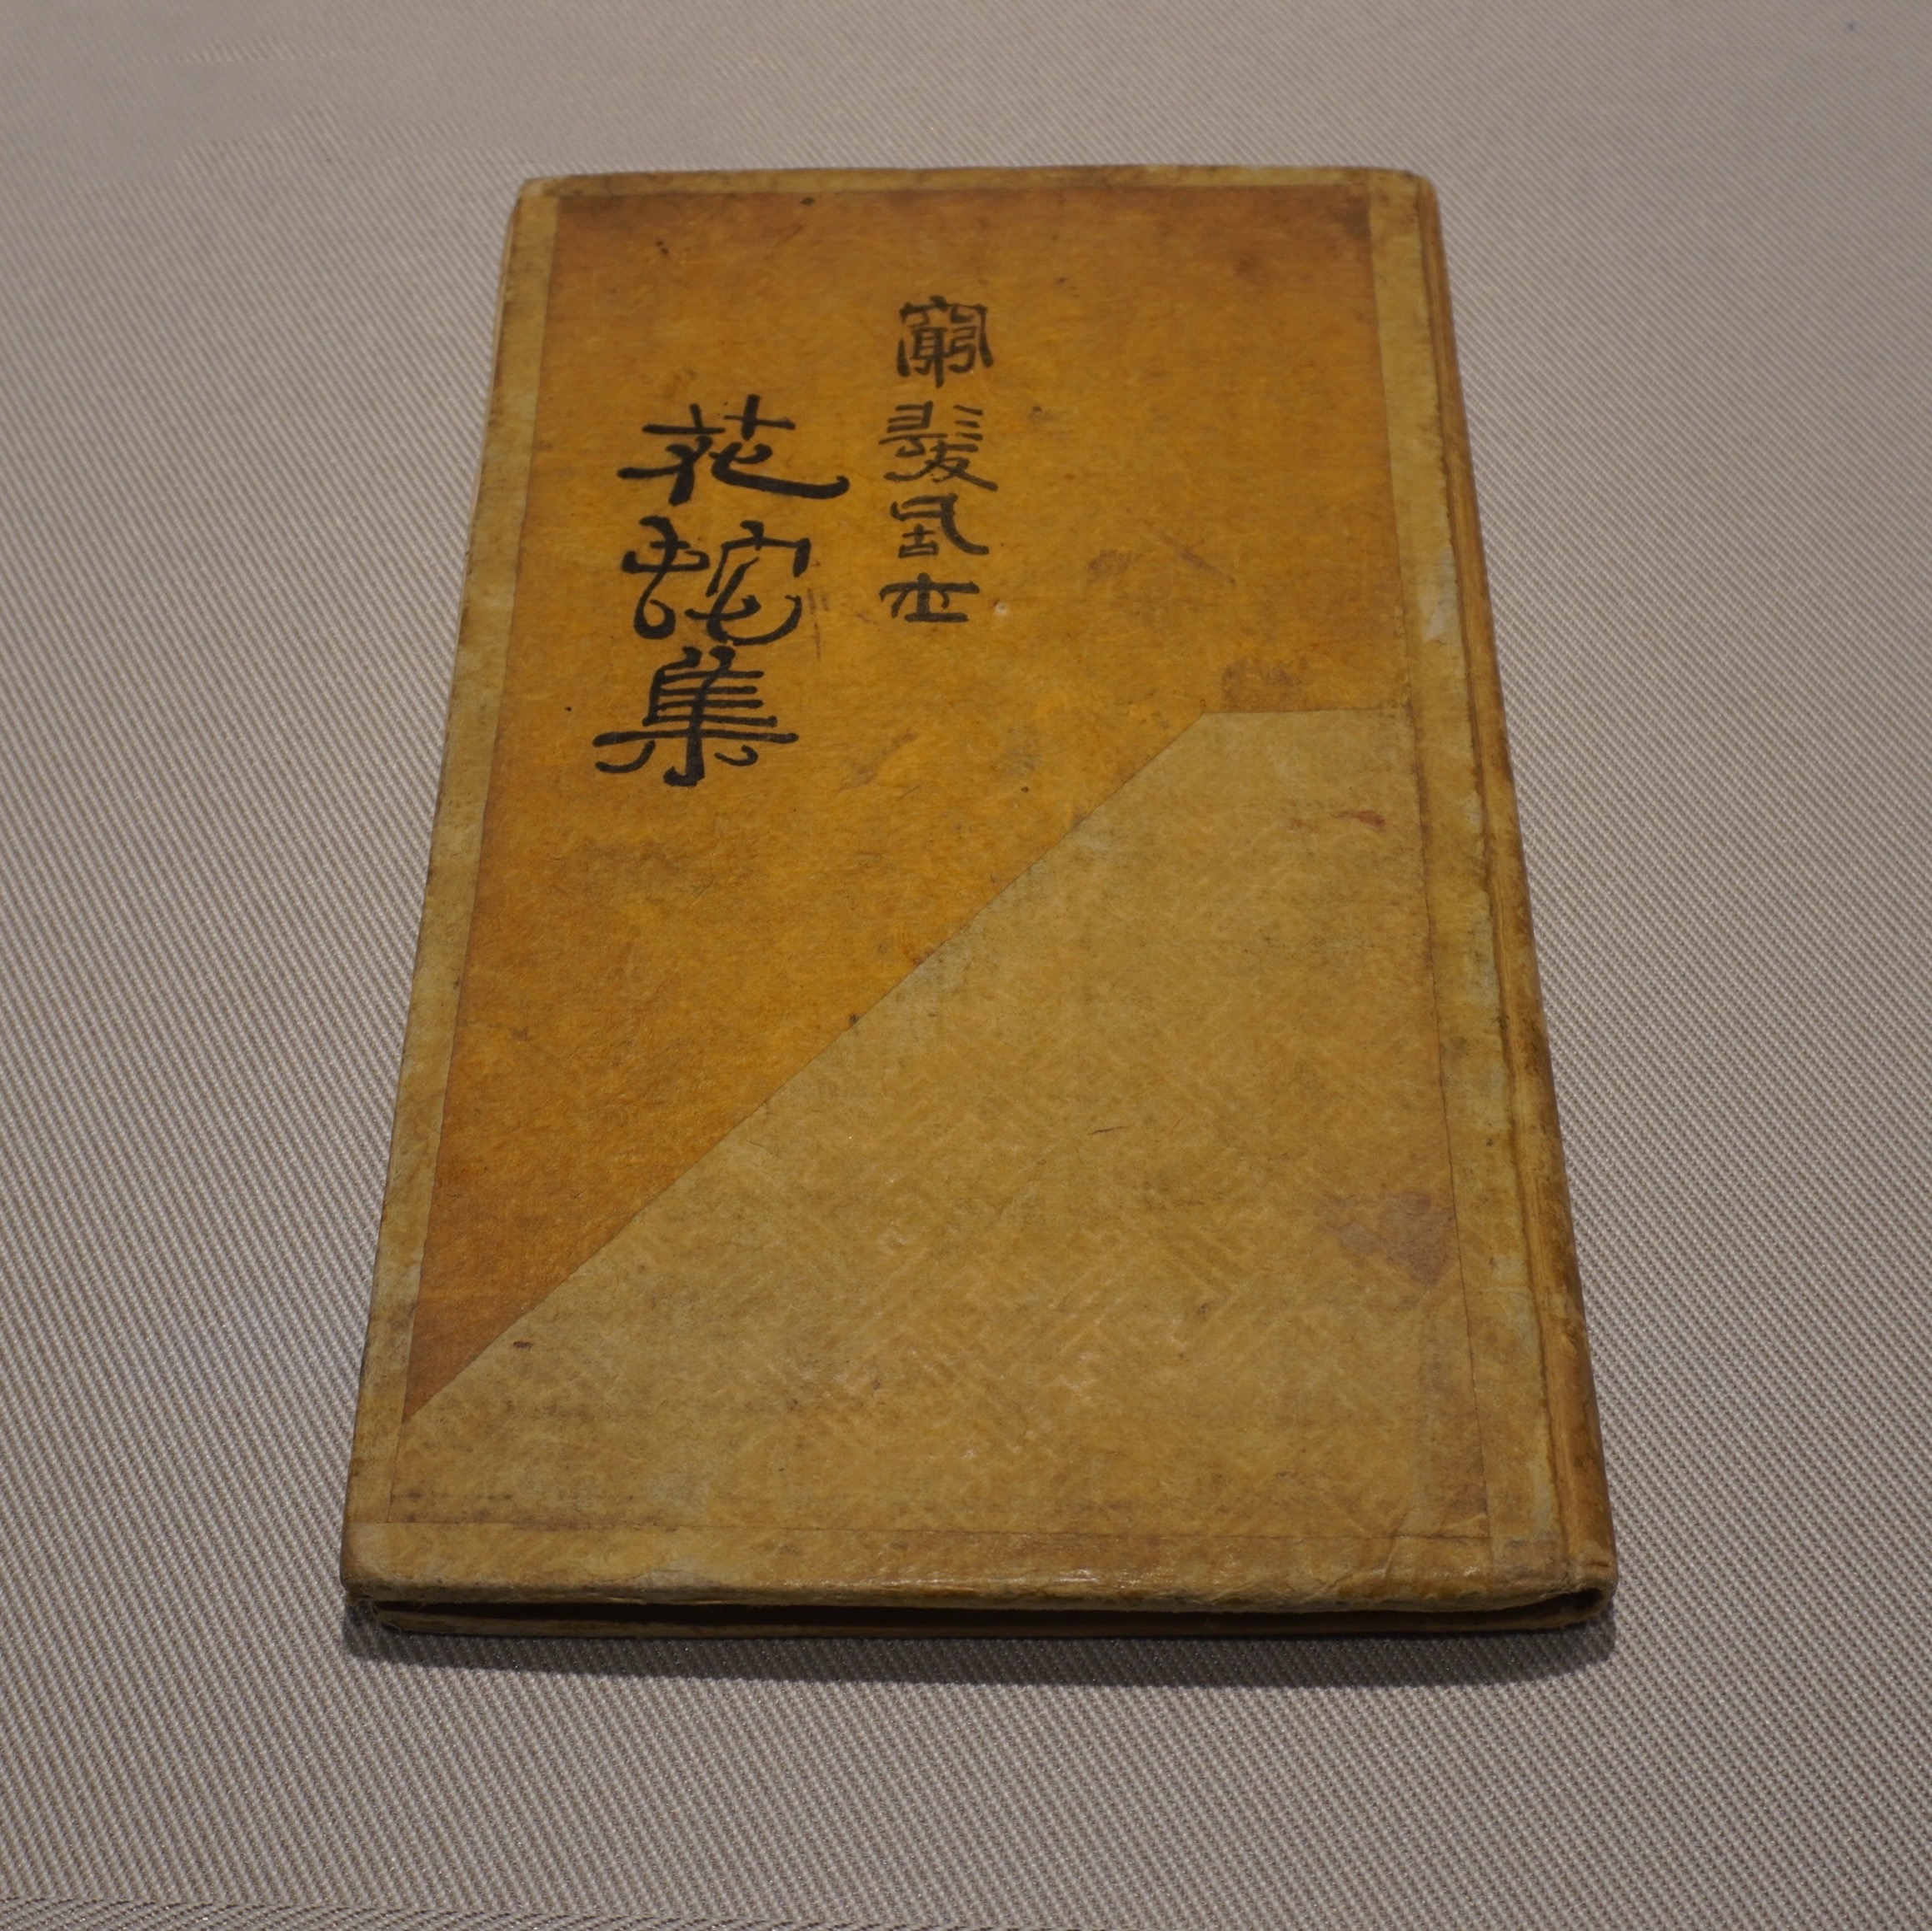 窮髮居士
花蛇集